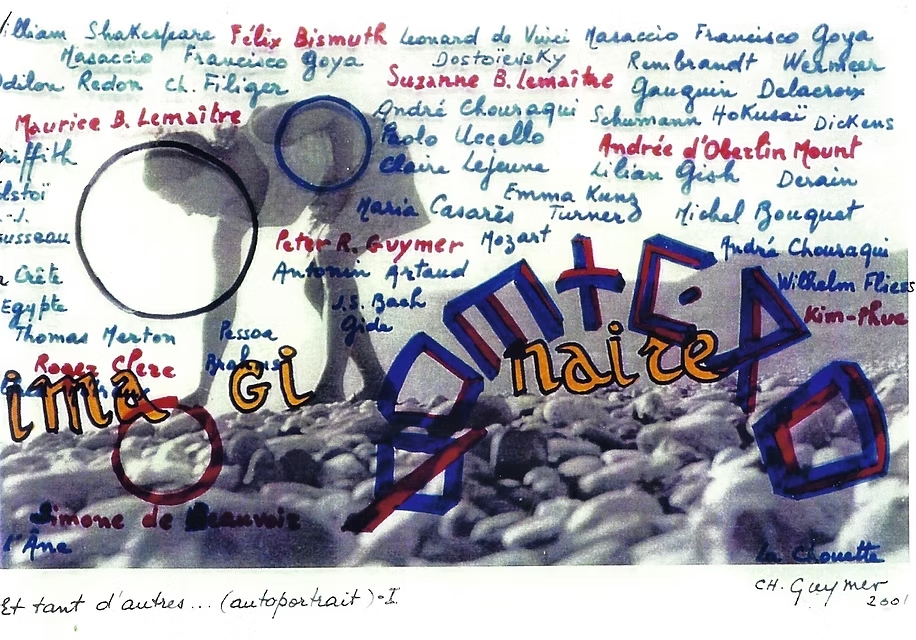 William Shakespeare Félix Bismuth Leonard de Vinci Masaccio Francisco Goya
Masaccio Francisco Goya Dostoïevsky Rembrandt Wermeer
Odilon Redon Ch. Filiger Suzanne B. Lemaître Gauguin Delacroix
Maurice B. Lemaître André Chouraqui Schumann Hokusaï Dickens
Griffith Paolo Uccello Andrée d'Oberlin Mount
Claire Lejeune Lilian Gish Derain
Emma Kunz
Maria Casarès Turner Michel Bouquet
Peter R. Guymer Mozart André Chouraqui
Crête Antonin Artaud Wilhelm Fliess
Egypte J.S. Bach Kim-Phuc
Thomas Merton Pessoa Gide
Roger Clerc Brahms
imaginaire
Simone de Beauvoir
l'Âne La Chouette
Et tant d'autres... (autoportrait)•II
CH. Guymer
2001